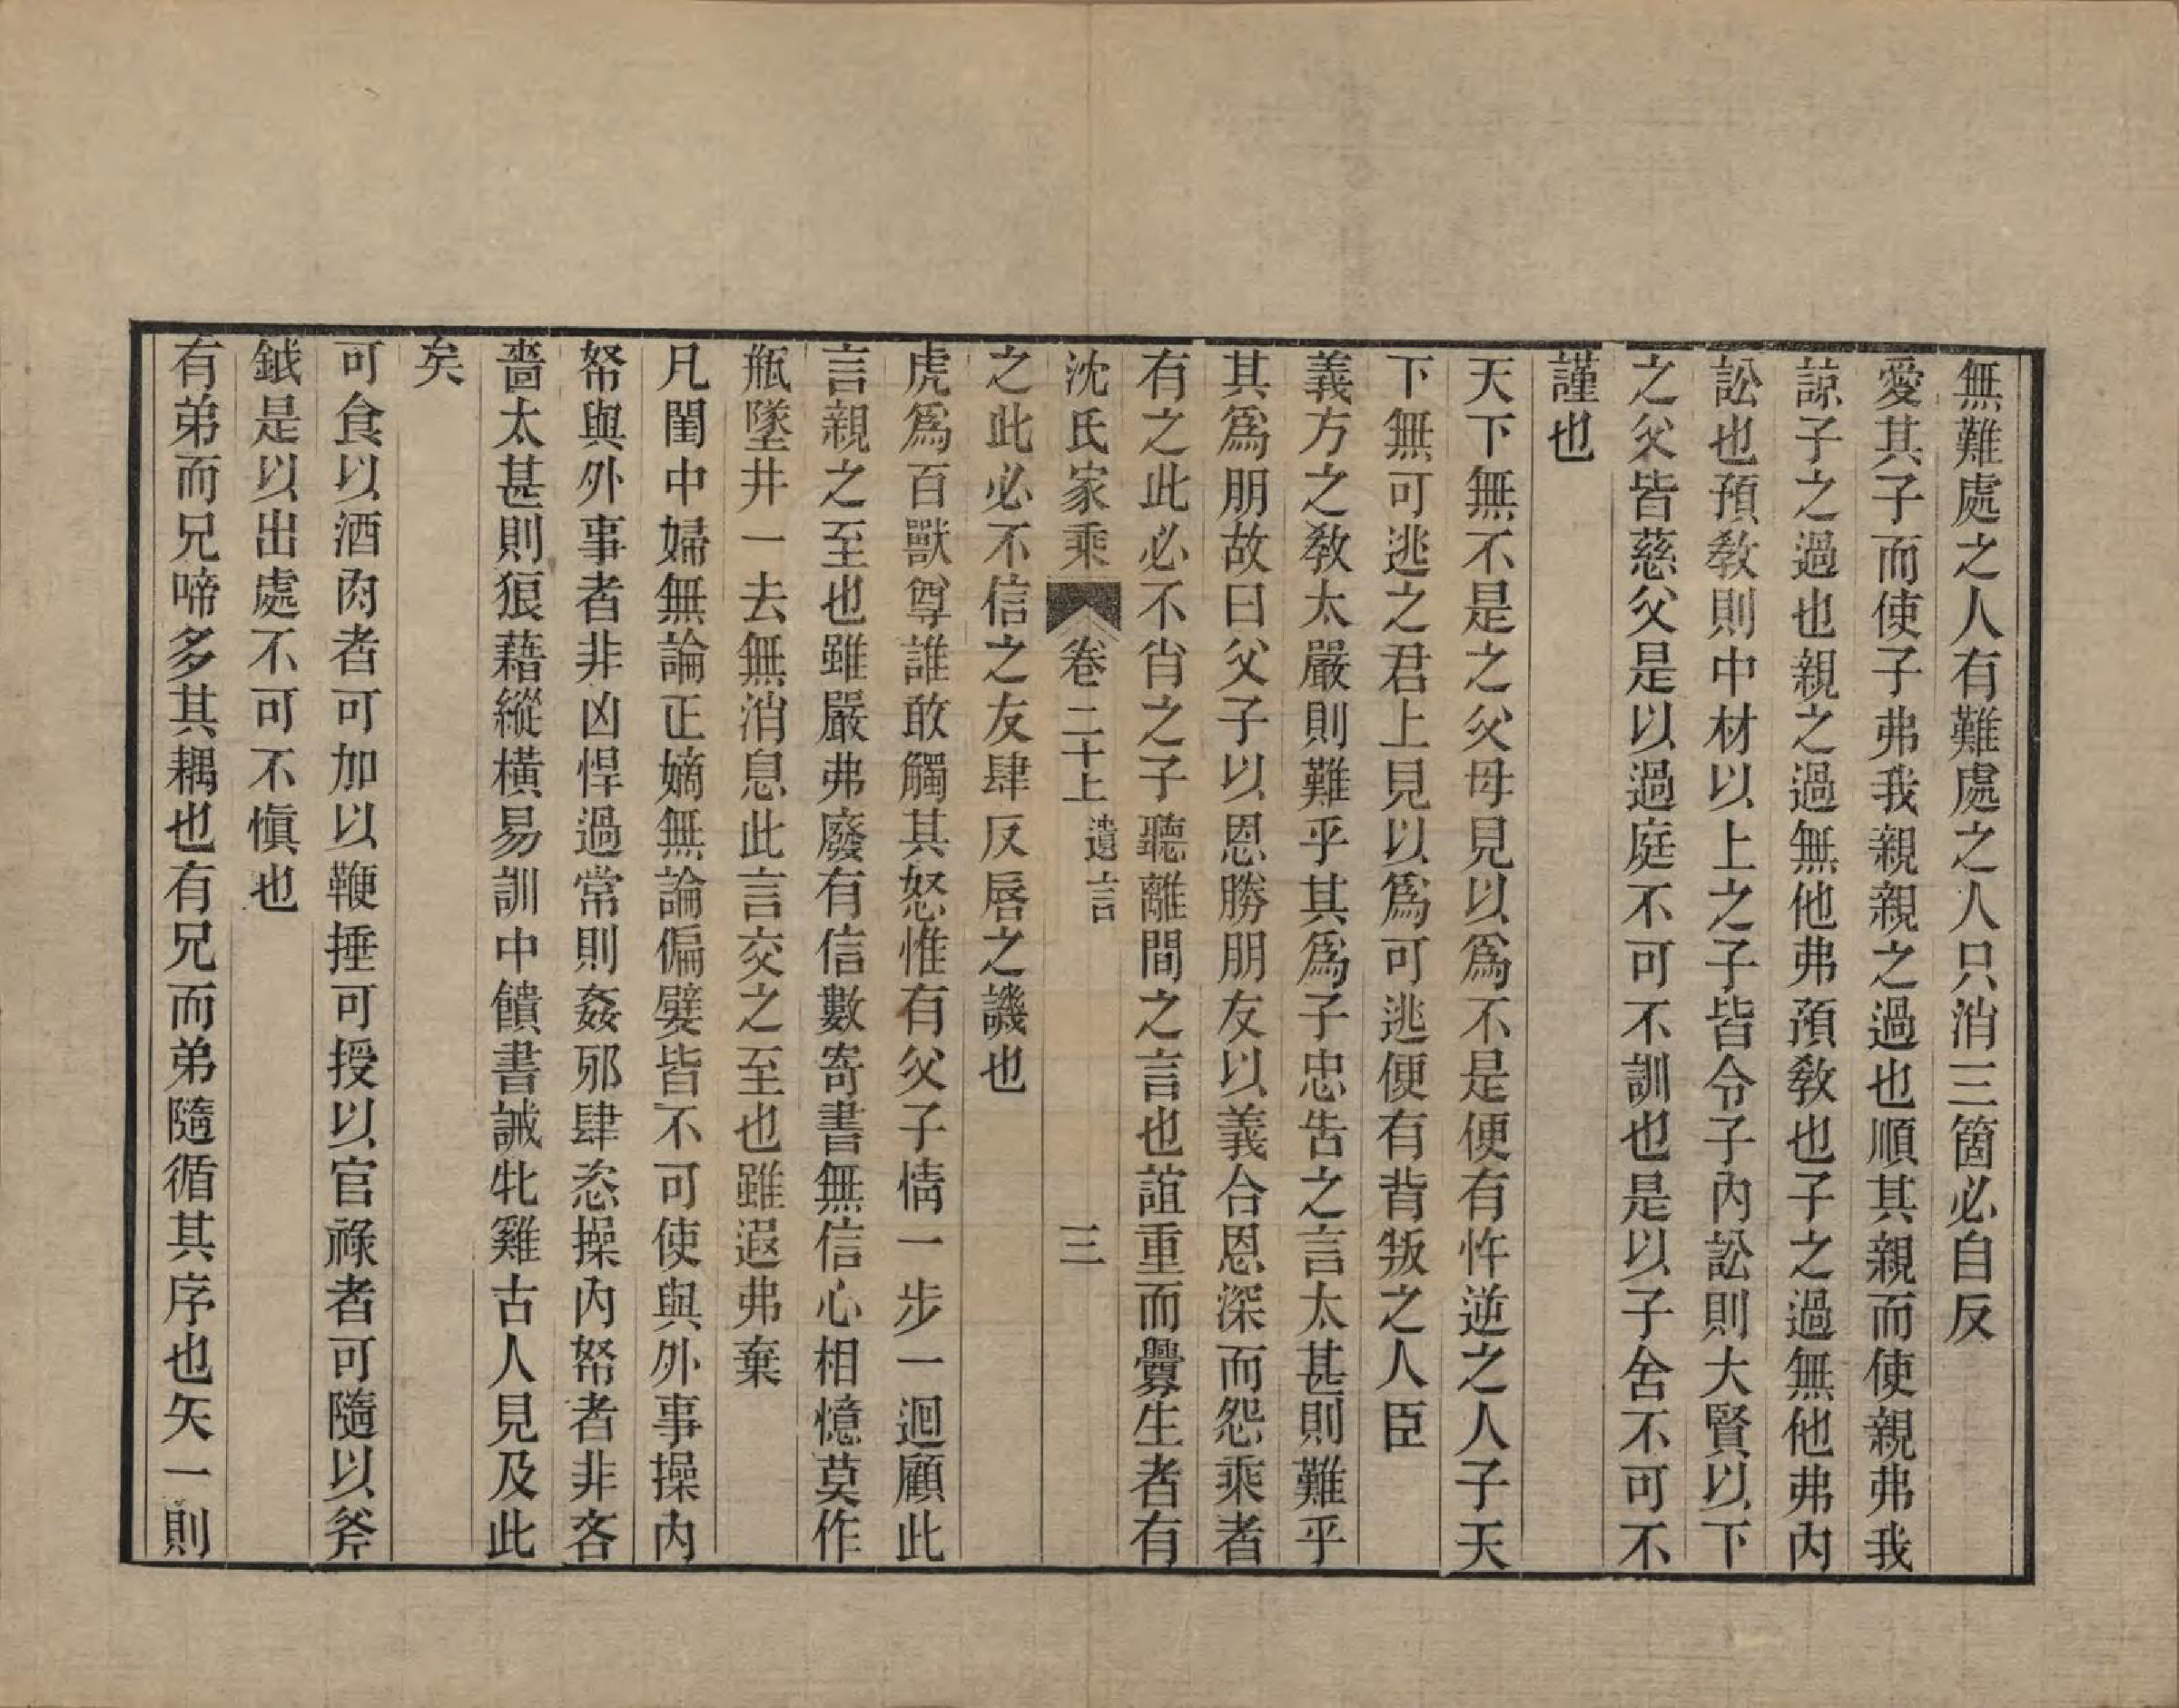 無難處之人有難處之人只消三箇必自反
愛其子而使子弗我親親之過也順其親而使親弗我
諒子之過也親之過無他弗預教也子之過無他弗內
訟也預教則中材以上之子皆令子內訟則大賢以下
之父皆慈父是以過庭不可不訓也是以子舍不可不
謹也
天下無不是之父母見以爲不是便有忤逆之人子天
下無可逃之君上見以爲可逃便有背叛之人臣
義方之教太嚴則難乎其爲子忠告之言太甚則難乎
其爲朋故曰父子以恩勝朋友以義合恩深而怨乘者
有之此必不肖之子聽離間之言也誼重而釁生者有
沈氏家乘 卷二十上 遺言 三
之此必不信之友肆反唇之譏也
虎爲百獸尊誰敢觸其怒惟有父子情一步一迴顧此
言親之至也雖嚴弗廢有信數寄書無信心相憶莫作
瓶墜井一去無消息此言交之至也雖遐弗棄
凡閨中婦無論正嫡無論偏嬖皆不可使與外事操內
帑與外事者非凶悍過常則姦邪肆恣操內帑者非吝
嗇太甚則狼藉縱橫易訓中饋書誡牝雞古人見及此
矣
可食以酒肉者可加以鞭捶可授以官祿者可隨以斧
鉞是以出處不可不愼也
有弟而兄啼多其耦也有兄而弟隨循其序也矢一則